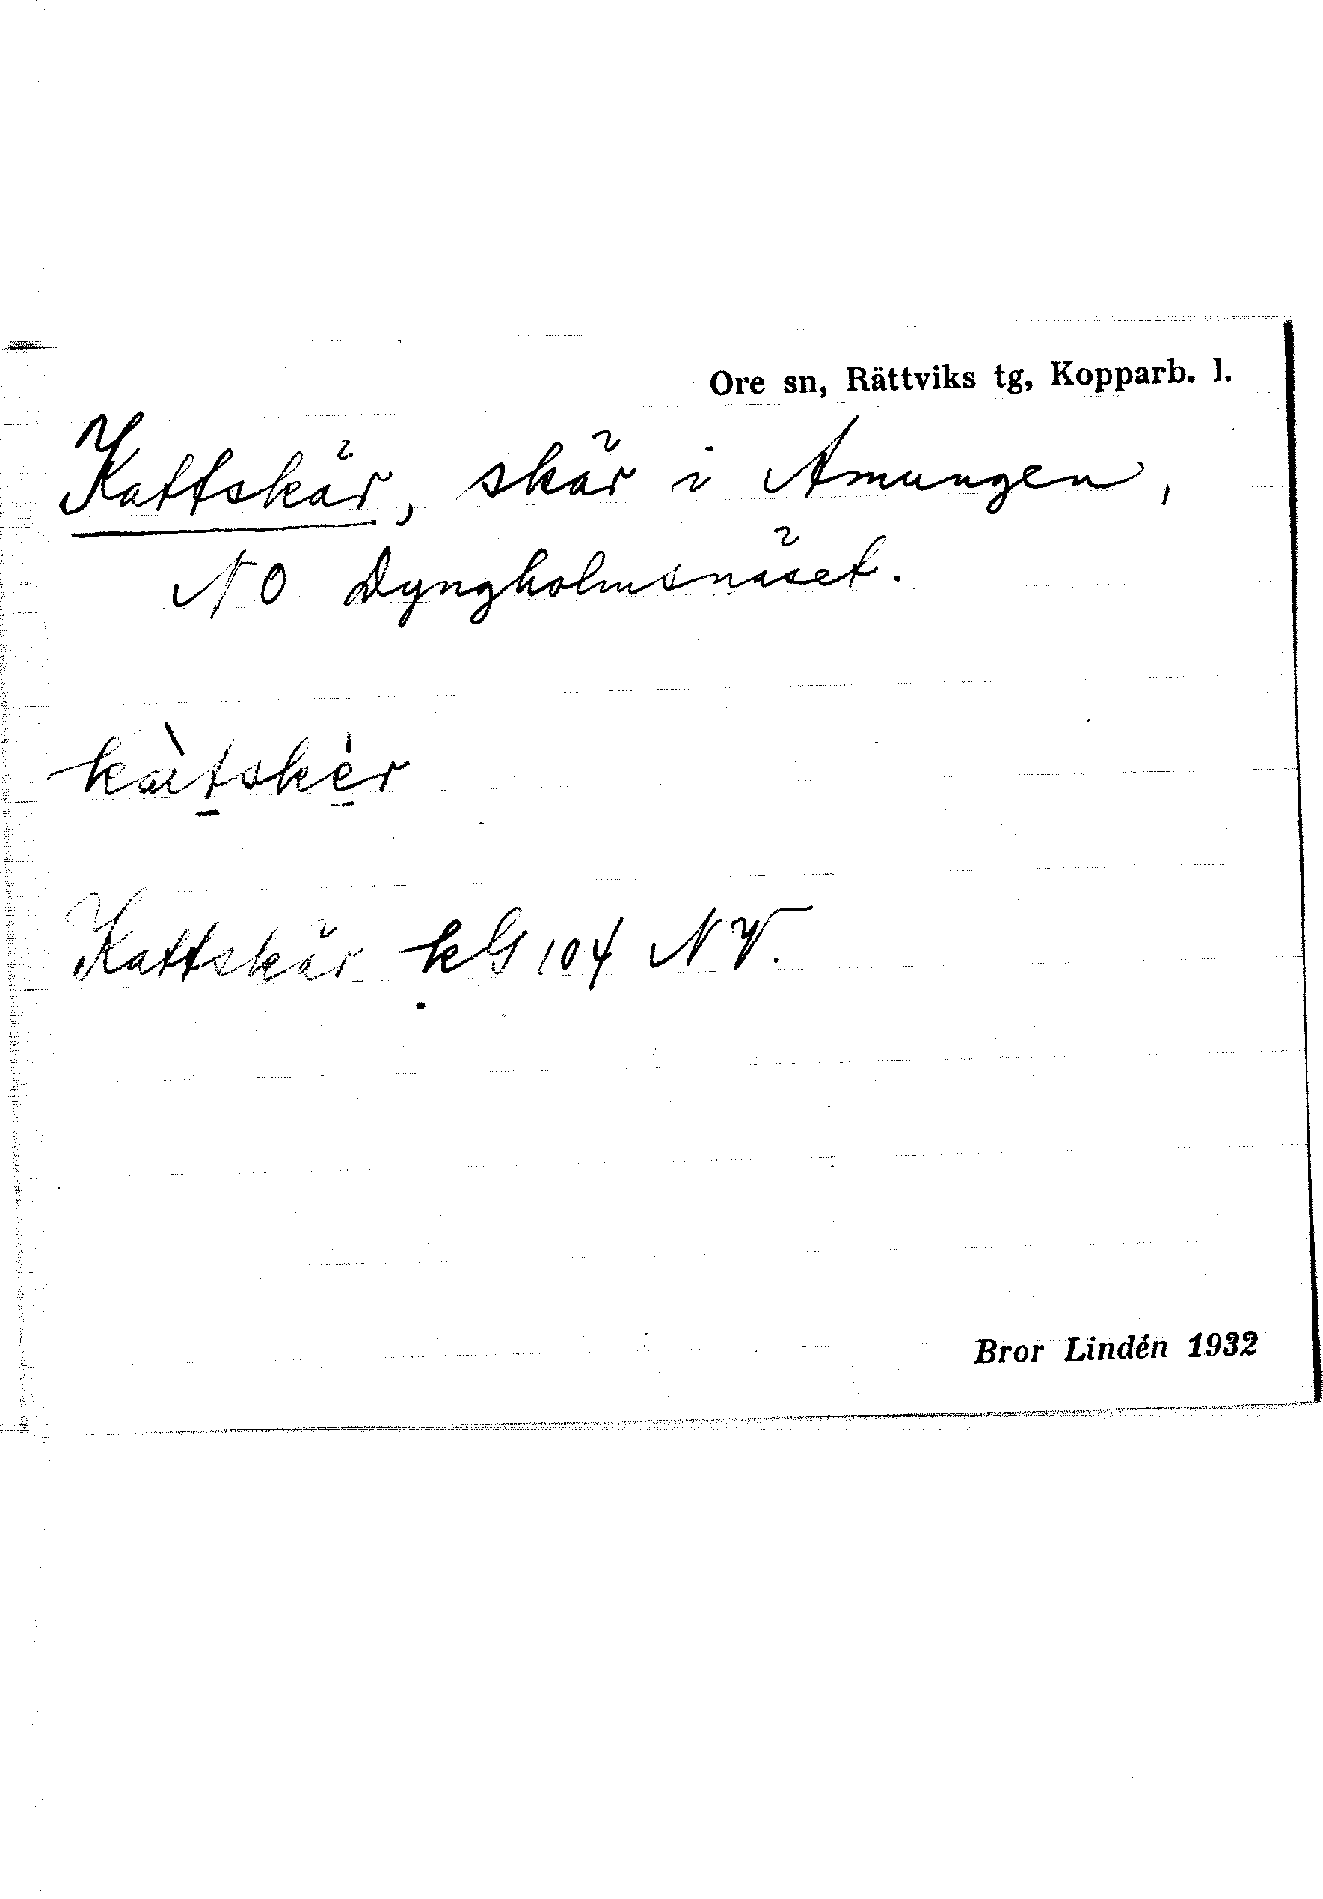 Ore sn, Rättviks tg, Kopparb. l.
Kattskär, skär i Amungen,
NO Dyngholmsnäset.
kàt̲ske̲̍r
Kattskär kG 104 NV.
Bror Lindén 1932